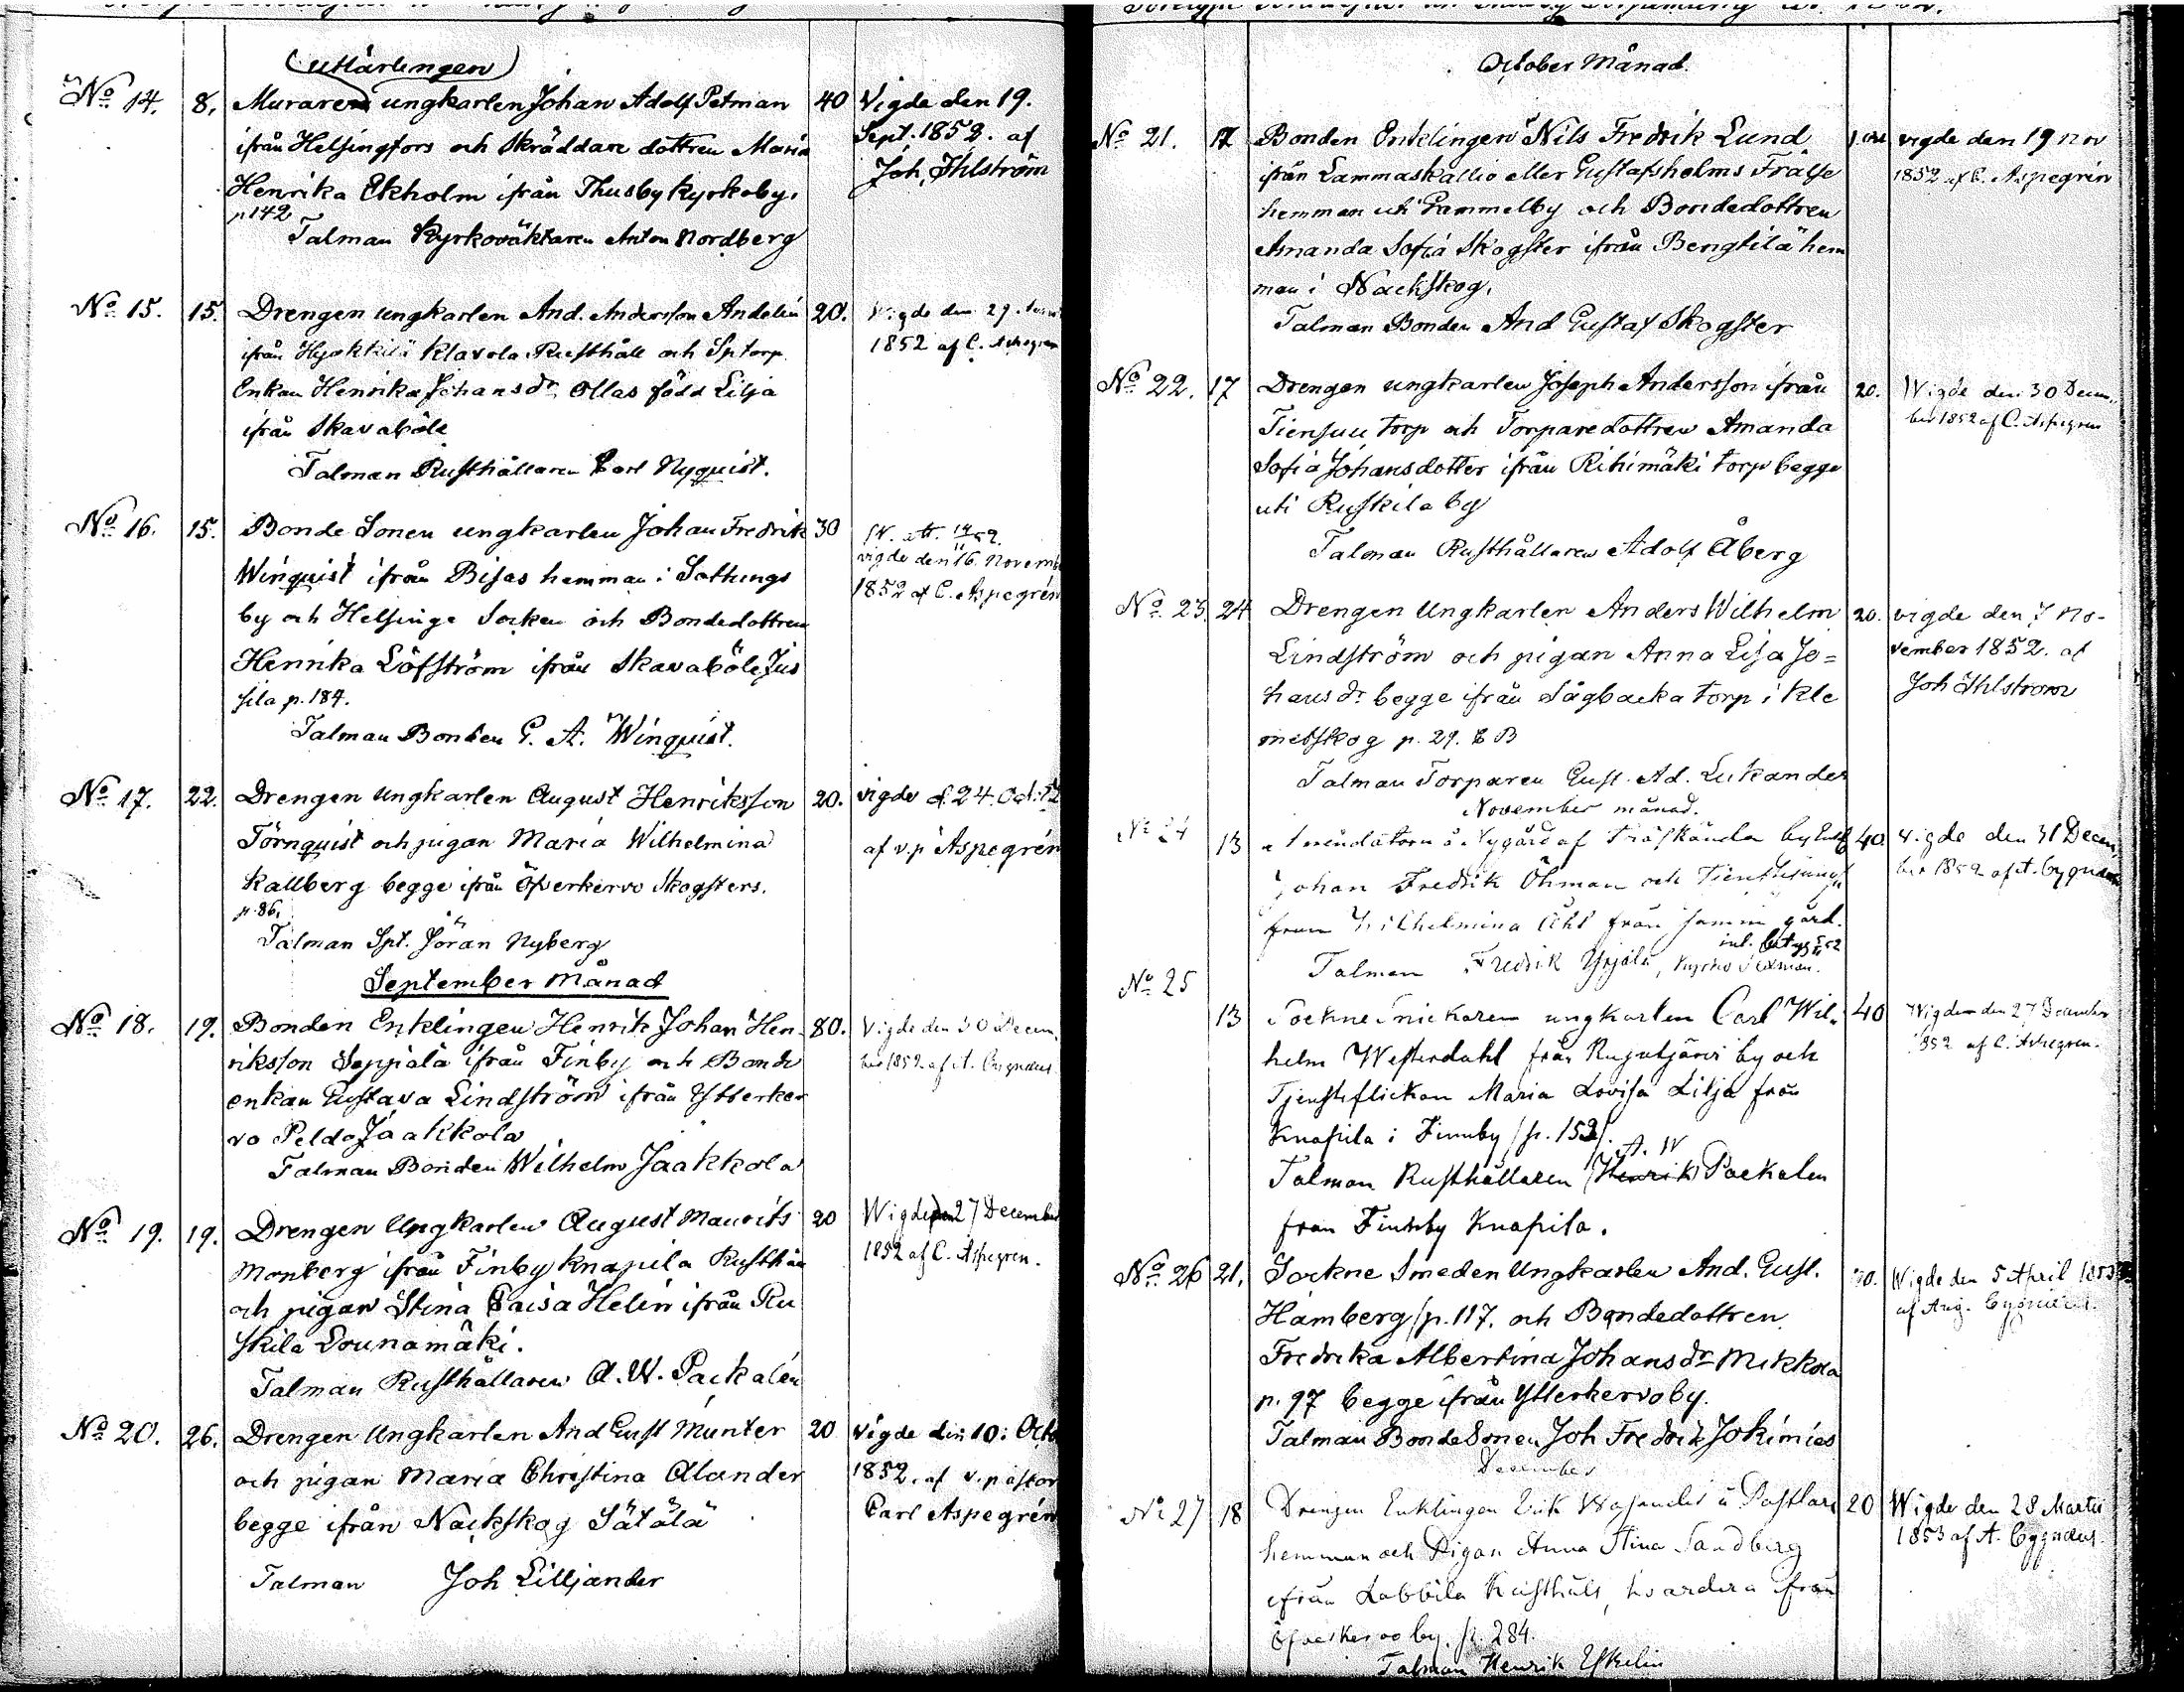 October Månad.
(utlärlingen)
No 14. 8. Muraren ungkarlen Johan Adolf Petman 40 Vigde den 19.
ifrån Helsingfors och Skräddare dottren Maria Sept. 1852. af
Henrika Ekholm ifrån Thusby kyrkoby. Joh. Ihlström
p 142
Talman Kyrkoväktaren Anton Nordberg
No 15. 15. Drengen ungkarlen And. Andersson Andelin 20. Vigde den 29.
ifrån Klavola Rusthåll och Sptorp. 1852 af C. Aspegren
Enkan Henrika Johansdr. Ollas född Lilja
ifrån Skavaböle
Talman Rusthållaren Carl Nyquist.
No 16. 15. Bonde Sonen ungkarlen Johan Fredrik 30
Winquist ifrån Bisas hemman i Sottungs vigde den 16. Novemb
by och Helsinge Socken och Bondedottren 1852 af C. Aspegrén
Henrika Löfström ifrån Skavaböle Jus
sila p. 184.
Talman Bonden G. A. Winquist.
No 17. 22. Drengen ungkarlen August Henriksson 20. vigde d. 24. Oct. 52
Törnquist och pigan Maria Wilhelmina af v.p Aspegrén
Kallberg begge ifrån Öfverkervo Skogsters.
p. 86.
Talman Spt. Jöran Nyberg
September Månad
No 18. 19. Bonden Enklingen Henrik Johan Hen- 80. Vigde den 30 Decem,
riksson Seppälä ifrån Finby och Bonde ber 1852 af A. Cygnæus.
enkan Gustava Lindström ifrån Ytterker
vo Peldo Jaakkola
Talman Bonden Wilhelm Jaakkola
No 19. 19. Drengen Ungkarlen August Maurits 20 Wigde den 27 December
Monberg ifrån Finby Knapila Rusthåll 1852 af C. Aspegren.
och pigan Stina Caisa Helin ifrån Ru
skila Lounamäki.
Talman Rusthållaren A. W. Packalén
No 20. 26. Drengen Ungkarlen And Gust Munter 20 vigde den 10. Octo
och pigan Maria Christina Alander 1852. af v. pastor
begge ifrån Nackskog Sätälä Carl Aspegrén
Talman Joh Lilljander
No 21. 17 Bonden Enklingen Nils Fredrik Lund vigde den 19 nov
ifrån Lammaskallio eller Gustafsholms Frälse 1852 af C. Aspegrén
hemman uti Gammelby och Bondedottren
Amanda Sofia Skogster ifrån Bengtilä hem
man i Nackskog.
Talman Bonden And Gustaf Skogster
No 22. 17 Drengen ungkarlen Joseph Andersson ifrån 20. Wigde den 30 Decem,
Tiensuu torp och Torparedottren Amanda ber 1852 af C. Aspegren
Sofia Johansdotter ifrån Rihimäki torp begge
uti Ruskila by
Talman Rusthållaren Adolf Åberg
No 23. 24 Drengen Ungkarlen Anders Wilhelm 20. vigde den 7 No-
Lindström och pigan Anna Lisa Jo= vember 1852. af
hansdr. begge ifrån Sågbacka torp i Kle Joh Ihlström
metskog p. 29.
Talman Torparen Gust. Ad. Lukander
November månad.
No 24 13 Arrendatorn å Nygård af Träskända by 40. Vigde den 31 Decem,
Johan Fredrik Öhman och ber 1852 af A. Cygnæus
Wilhelmina från gård.
Talman Fredrik Yrjälä,
No 25
13 Sockne Snickaren ungkarlen Carl Wil- 40 Wigde den 27 December
helm Westerdahl från Rusutjärvi by och 1852 af C. Aspegren.
Tjensteflickan Maria Lovisa Lilja från
Knapila i Finnby /p. 152/.
A. W
Talman Rusthållaren Henrik Packalen
från Finnby Knapila.
No 26 21. Sockne Smeden Ungkarlen And. Gust. Wigde den 5 April 1853
Hamberg /p. 117. och Bondedottren af Aug. Cygnæus.
Fredrika Albertina Johansdr Mikkola
p. 97 begge ifrån Ytterkervo by.
Talman Bonde Sonen Joh Fredrik Jokimies
December
No 27 18 Drengen Enklingen Erik å 20 Wigde den 28 Martii
hemman och Pigan Anna Stina Sandberg 1853 af A. Cygnæus.
ifrån Labbila Rusthåll, ifrån
Öfverkervo by. p. 284.
Talman Henrik Eskelin